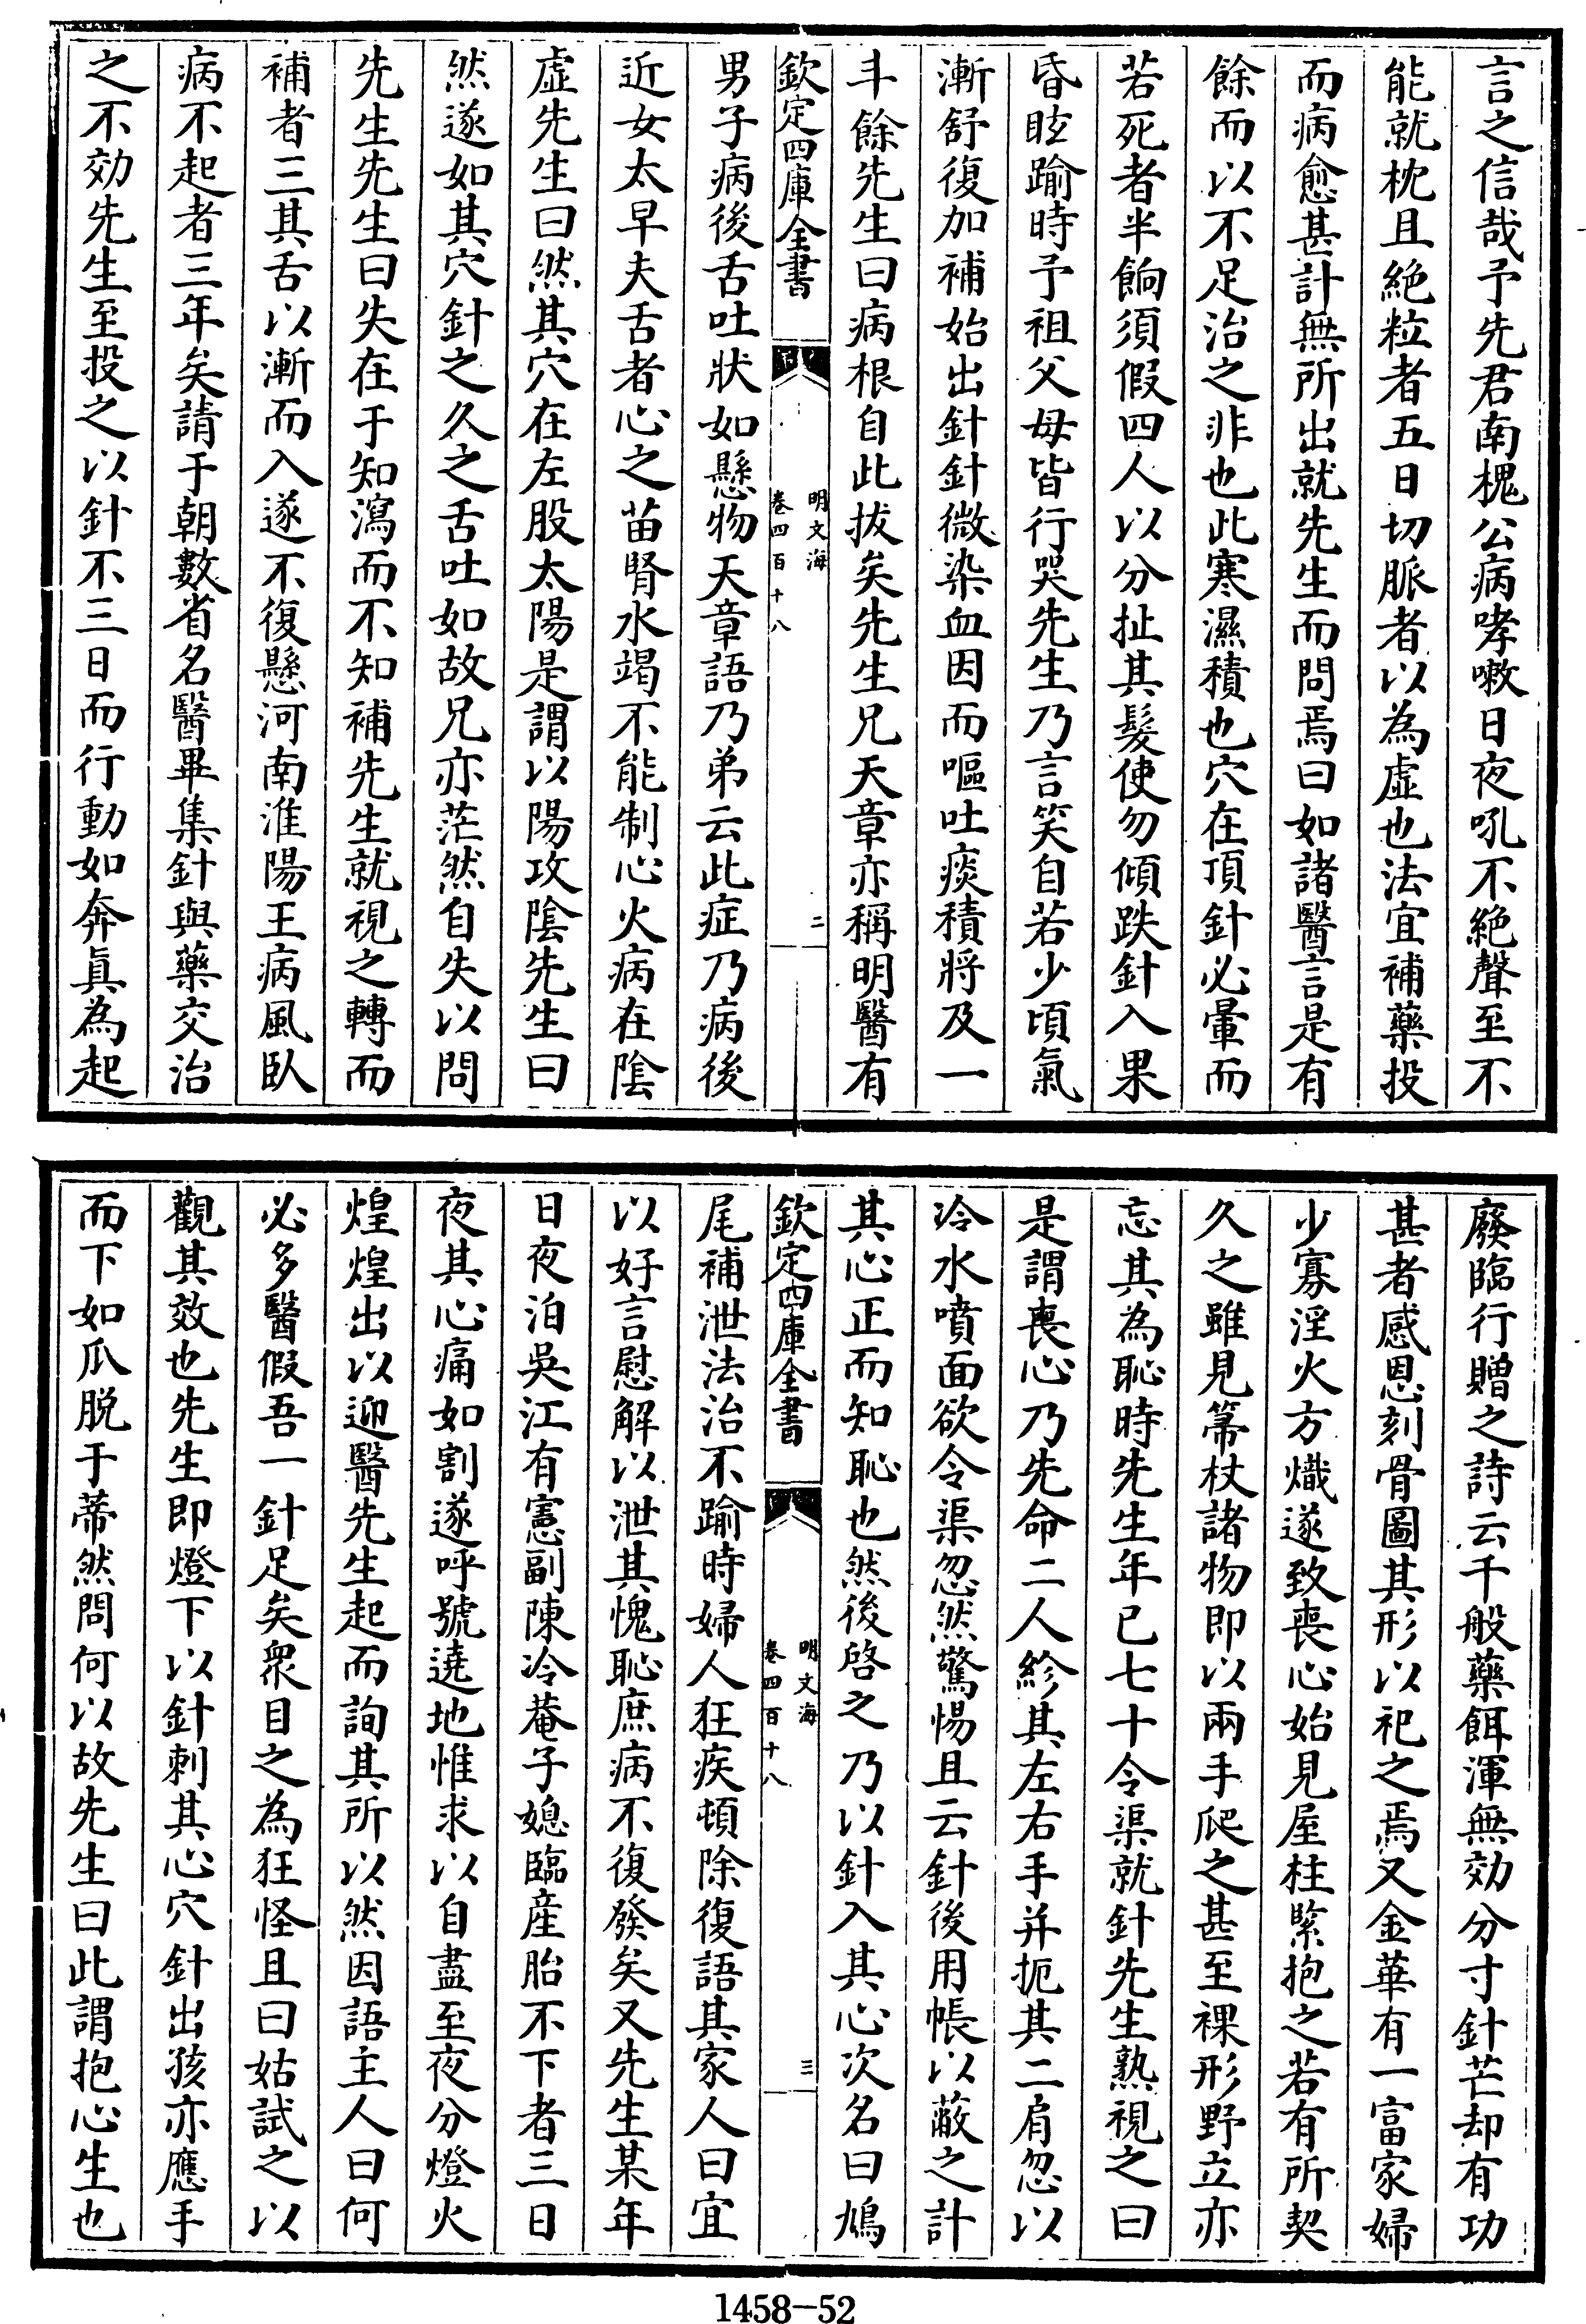 言之信哉予先君南槐公病哮嗽日夜吼不絶聲至不
能就枕且絶粒者五日切脈者以為虚也法宜補藥投
而病愈甚計無所出就先生而問焉曰如諸醫言是有
餘而以不足治之非也此寒濕積也穴在頂針必暈而
若死者半餉須假四人以分扯其髮使勿傾跌針入果
昏眩踰時予祖父母皆行哭先生乃言笑自若少頃氣
漸舒復加補始出針針微染血因而嘔吐痰積將及一
斗餘先生曰病根自此拔矣先生兄天章亦稱明醫有
欽定四庫全書
明文海
卷四百十八
二
男子病後舌吐狀如懸物天章語乃弟云此症乃病後
近女太早夫舌者心之苗腎水竭不能制心火病在陰
虚先生曰然其穴在左股太陽是謂以陽攻陰先生曰
然遂如其穴針之久之舌吐如故兄亦茫然自失以問
先生先生曰失在于知瀉而不知補先生就視之轉而
補者三其舌以漸而入遂不復懸河南淮陽王病風臥
病不起者三年矣請于朝數省名醫畢集針與藥交治
之不効先生至投之以針不三日而行動如奔真為起
廢臨行贈之詩云千般藥餌渾無効分寸針芒却有功
甚者感恩刻骨圖其形以祀之焉又金華有一富家婦
少寡淫火方熾遂致喪心始見屋柱緊抱之若有所契
久之雖見箒杖諸物即以兩手爬之甚至裸形野立亦
忘其為恥時先生年已七十令渠就針先生熟視之曰
是謂喪心乃先命二人紾其左右手并扼其二肩忽以
冷水噴面欲令渠忽然驚惕且云針後用帳以蔽之計
其心正而知恥也然後啓之乃以針入其心次名曰鳩
欽定四庫全書
明文海
卷四百十八
三
尾補泄法治不踰時婦人狂疾頓除復語其家人曰宜
以好言慰解以泄其愧恥庶病不復發矣又先生某年
日夜泊吳江有憲副陳冷菴子媳臨産胎不下者三日
夜其心痛如割遂呼號遶地惟求以自盡至夜分燈火
煌煌出以迎醫先生起而詢其所以然因語主人曰何
必多醫假吾一針足矣衆目之為狂怪且曰姑試之以
觀其效也先生即燈下以針刺其心穴針出孩亦應手
而下如瓜脱于蒂然問何以故先生曰此謂抱心生也
1458-52